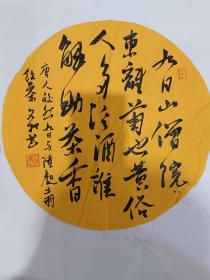 九日山僧院
東籬菊也黄俗
人多泛酒誰
解助茶香
唐人皎然九日与陸處士羽
飲茶